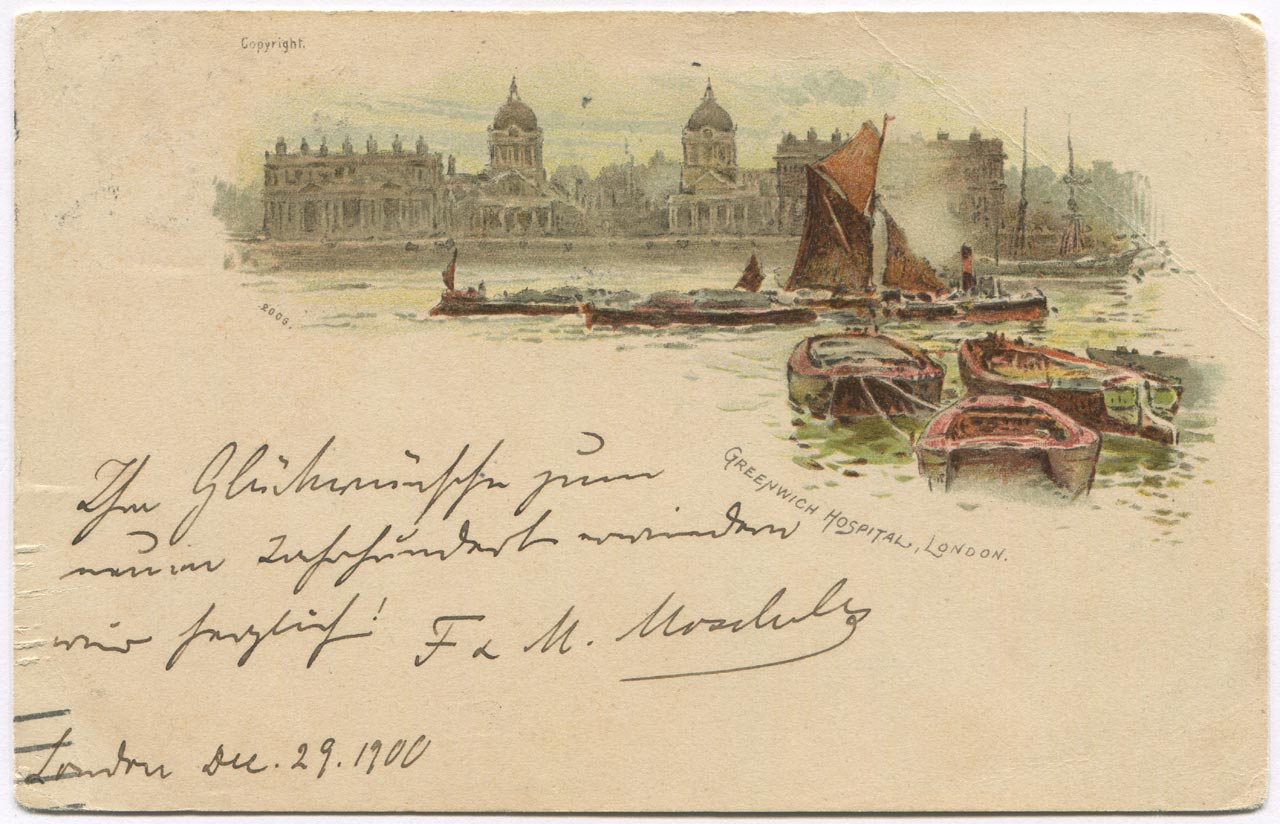 Copyright.
2006.
GREENWICH HOSPITAL, LONDON.
Ihre Glückwünsche zum
neuen Jahrhundert erwiedern
wir herzlich! F & M. Moscheles
London Dec. 29. 1900